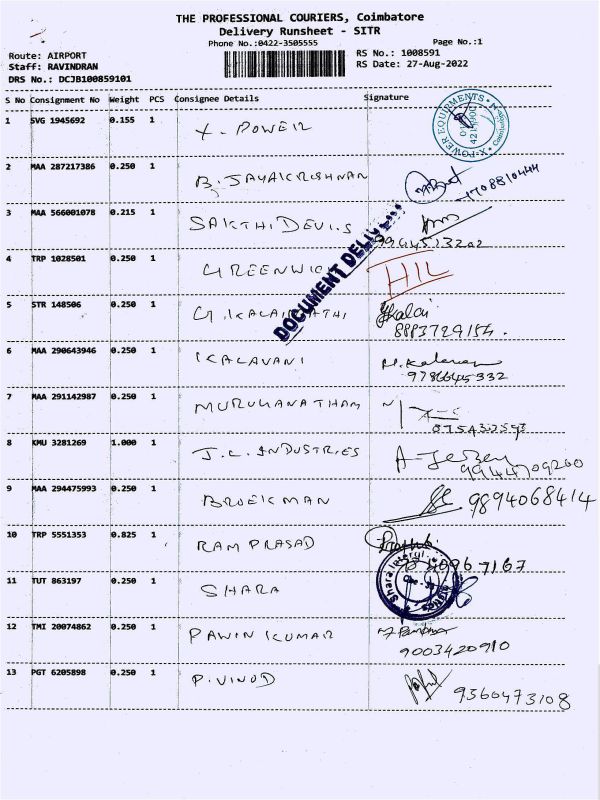 THE PROFESSIONAL COURIERS, Coimbatore
Delivery Runsheet - SITR
Phone No.:0422-3505555 Page No.:1
Route: AIRPORT RS No.: 1008591
Staff: RAVINDRAN RS Date: 27-Aug-2022
DRS No.: DCJB100859101
S No Consignment No Weight PCS Consignee Details Signature
1 SVG 1945692 0.155 1 X-POWER
X-POWER EQUIPMENTS
2 MAA 287217386 0.250 1 B. JAYAKRISHNAN
3 MAA 566001078 0.215 1 SAKTHI DEVI.S
4 TRP 1028501 0.250 1 GREENWICH HIL
DOCUMENT DELIVE
5 STR 148506 0.250 1 G.KALAI ATHI Kalai
8883729154.
6 MAA 290643946 0.250 1 KALAVANI
9786645332
7 MAA 291142987 0.250 1 MURUGANATHAM
8 KMU 3281269 1.000 1 J.L. INDUSTRIES
9944709260
9 MAA 294475993 0.250 1 BROEKMAN 9894068414
10 TRP 5551353 0.825 1 RAM PRASAD
11 TUT 863197 0.250 1 SHARA
Shara
12 TMI 20074862 0.250 1 PAWIN KUMAR
9003420910
13 PGT 6205898 0.250 1 P.VINOD 9360473108